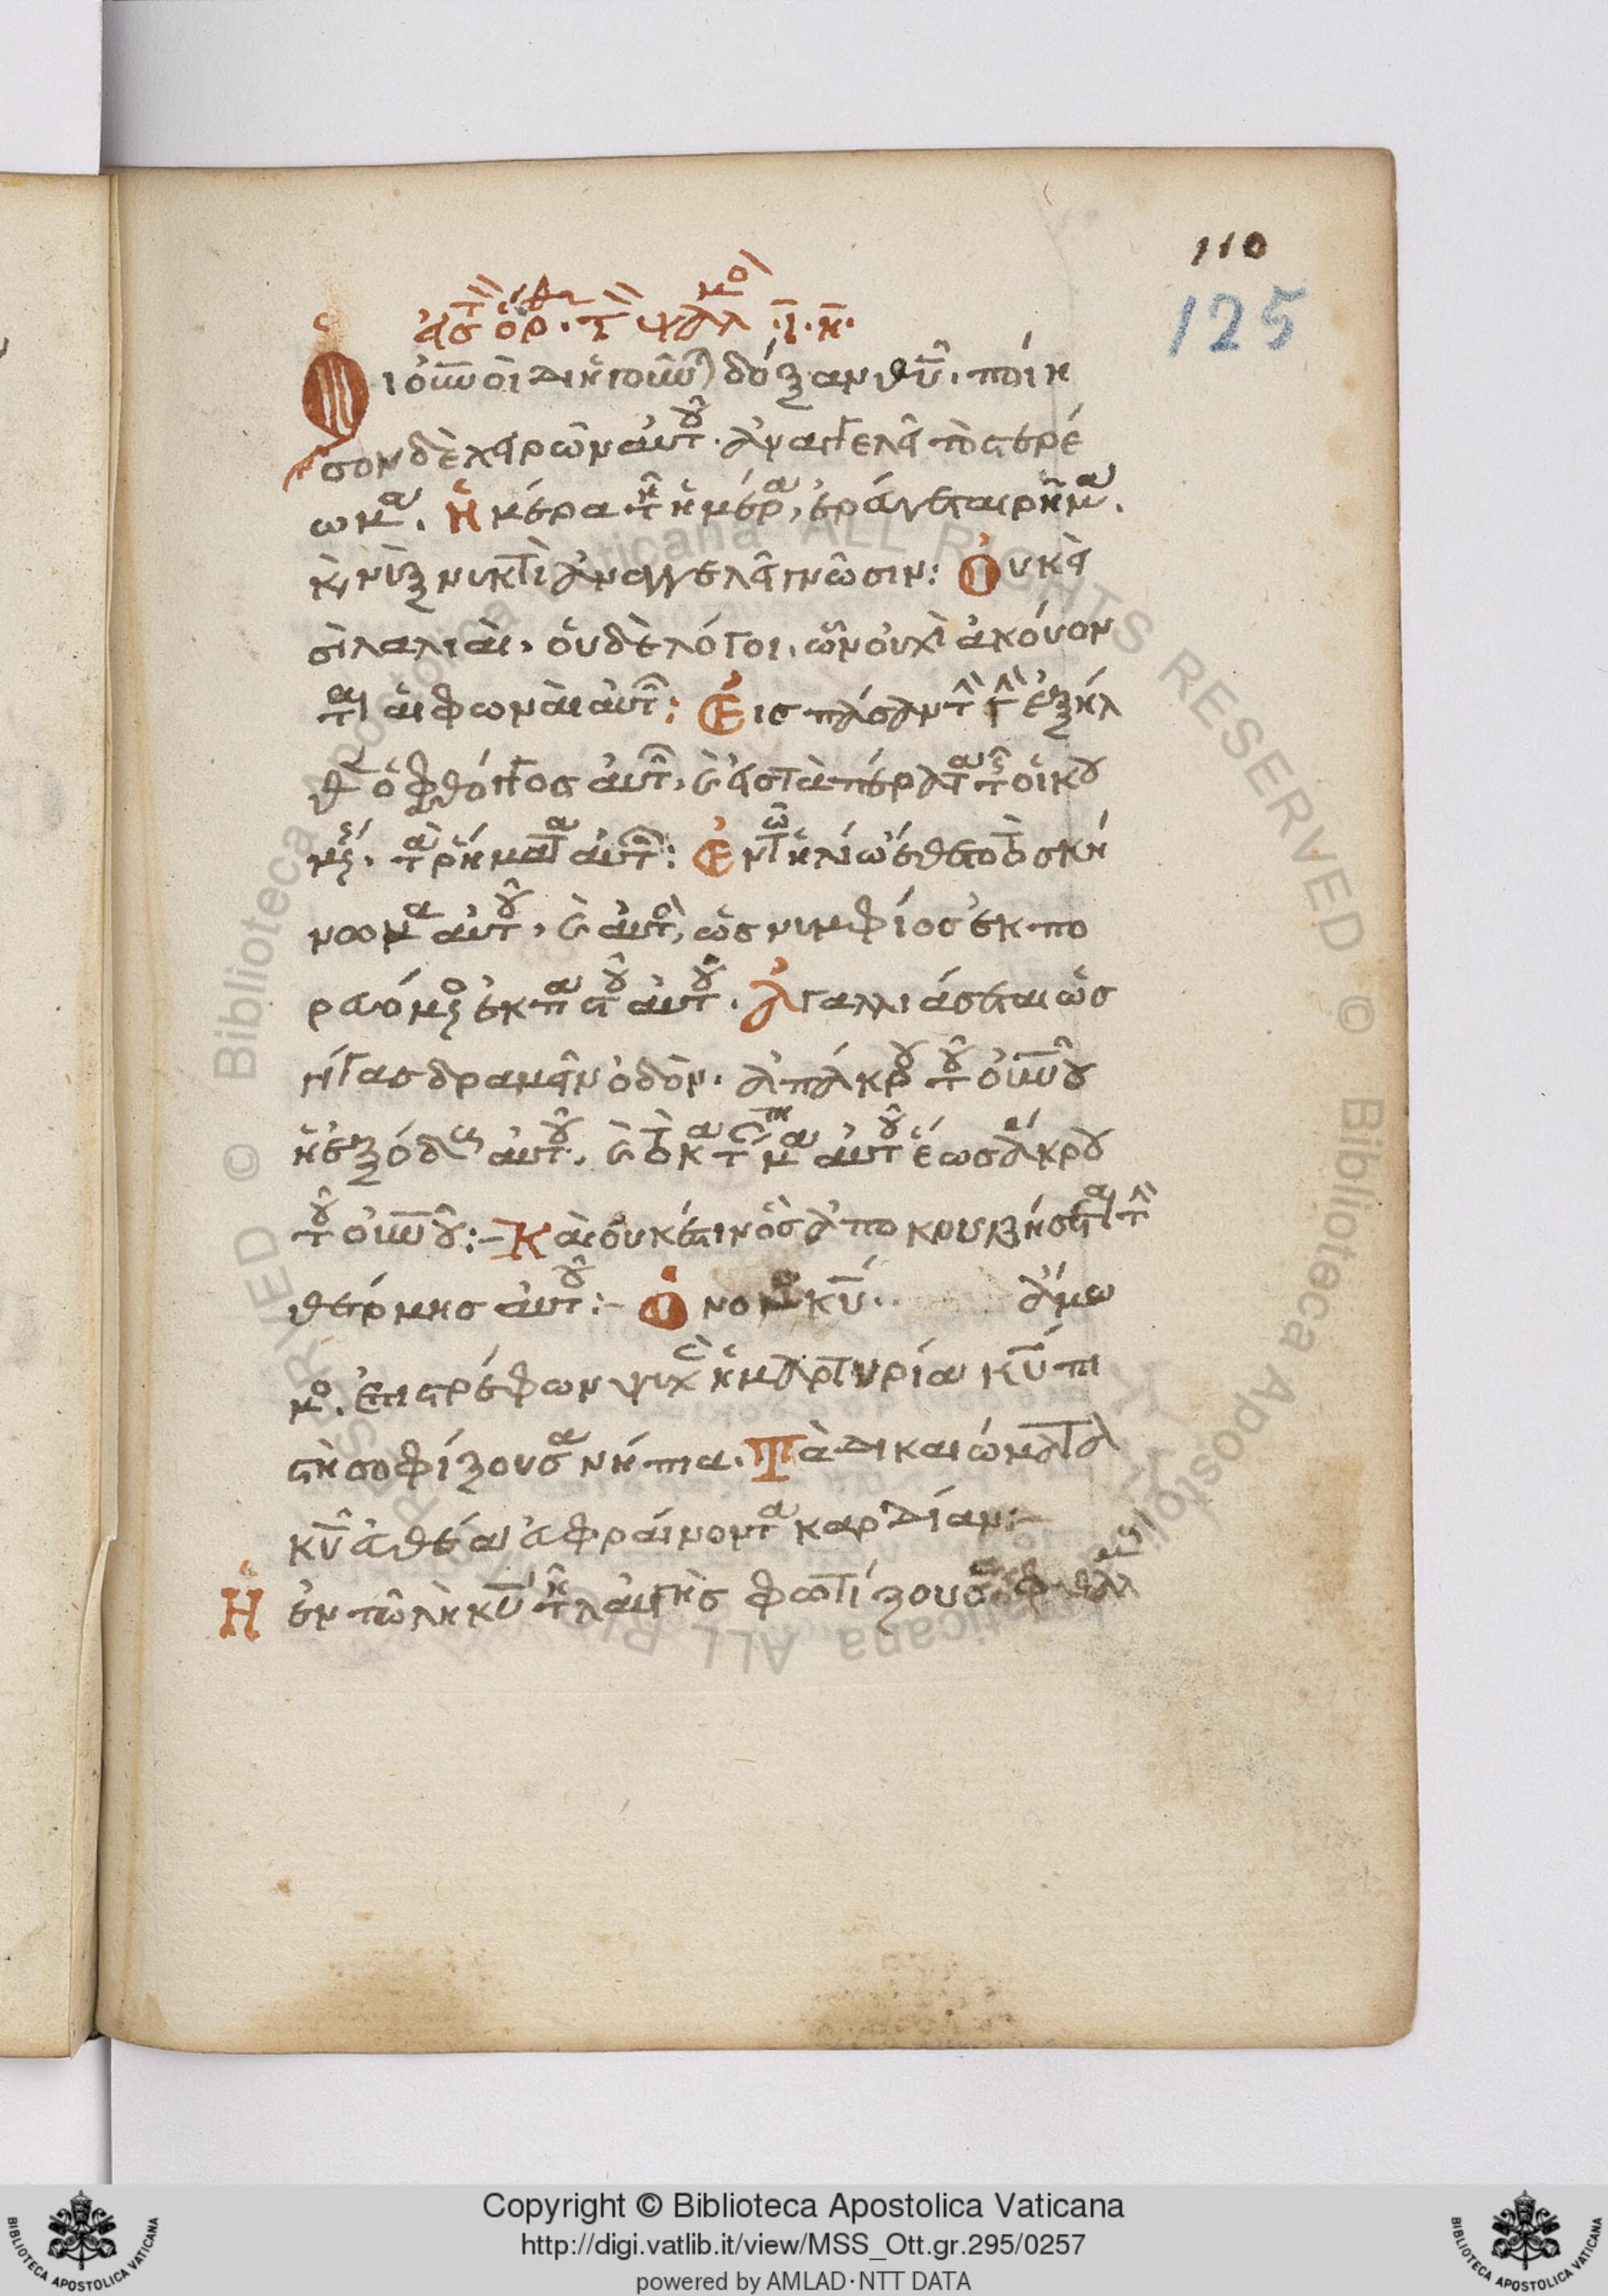 110
125
εἰς τ ὄρθ. τ ψαλμὸ ιη.
Οἱ οὐνοὶ διηγοῦν δόξαν θυ. ποίη
σιν δὲ χειρῶν αὐτοῦ. ἀναγγέλει τὸ στερέ
ωμα. Ἡμέρα τῆ ἡμέρα, ἐρεύγεται ρῆμα.
κ, νὺξ νυκτὶ ἀναγγελεῖ γνῶσιν: Οὐκ εἰ
σὶ λαλιαὶ, οὐδὲ λόγοι, ὧν οὐχὶ ἀκούον
ται αἱ φωναὶ αὐτῶν: Εἰς πάσαν τὴν γῆν ἐξῆλ
θεν ὁ φθόγγος αὐτῶν, κ εἰς τὰ πέρατα τῆς οἰκου
μένης. τὰ ρήματα αὐτῶν: Ἐν τῶ ἡλίω ἔθετο τὸ σκή
νωμα αὐτοῦ, κ αὐτὸς, ὡς νυμφίος ἐκπο
ρευόμενος ἐκ παστοῦ αὐτοῦ. Ἀγαλλιάσεται ὡς
γίγας δραμεῖν ὁδὸν. ἀπάκρου τοῦ οὐνοῦ
ἡ ἔξοδος αὐτοῦ. κ τὸ κατάντημα αὐτοῦ ἕως ἄκρου
τοῦ οὐνοῦ:- Καὶ οὐκ ἔστιν ὃς ἀποκρυβήσεται τὴν
θέρμης αὐτοῦ:- Ὁ νομο κυ. ἄμω
μος. ἐπιστρέφων ψυχὰς ἡ μαρτυρία κυ πι
στὴ σοφίζουσα νήπια. Τὰ δικαιώματα
κυ εὐθέα εὐφραίνοντα καρδίαν:-
Ἡ ἐντωλὴ κυ τηλαυγὴς φωτίζουσα ὀφθαλμ
Copyright © Biblioteca Apostolica Vaticana
http://digi.vatlib.it/view/MSS_Ott.gr.295/0257
powered by AMLAD·NTT DATA